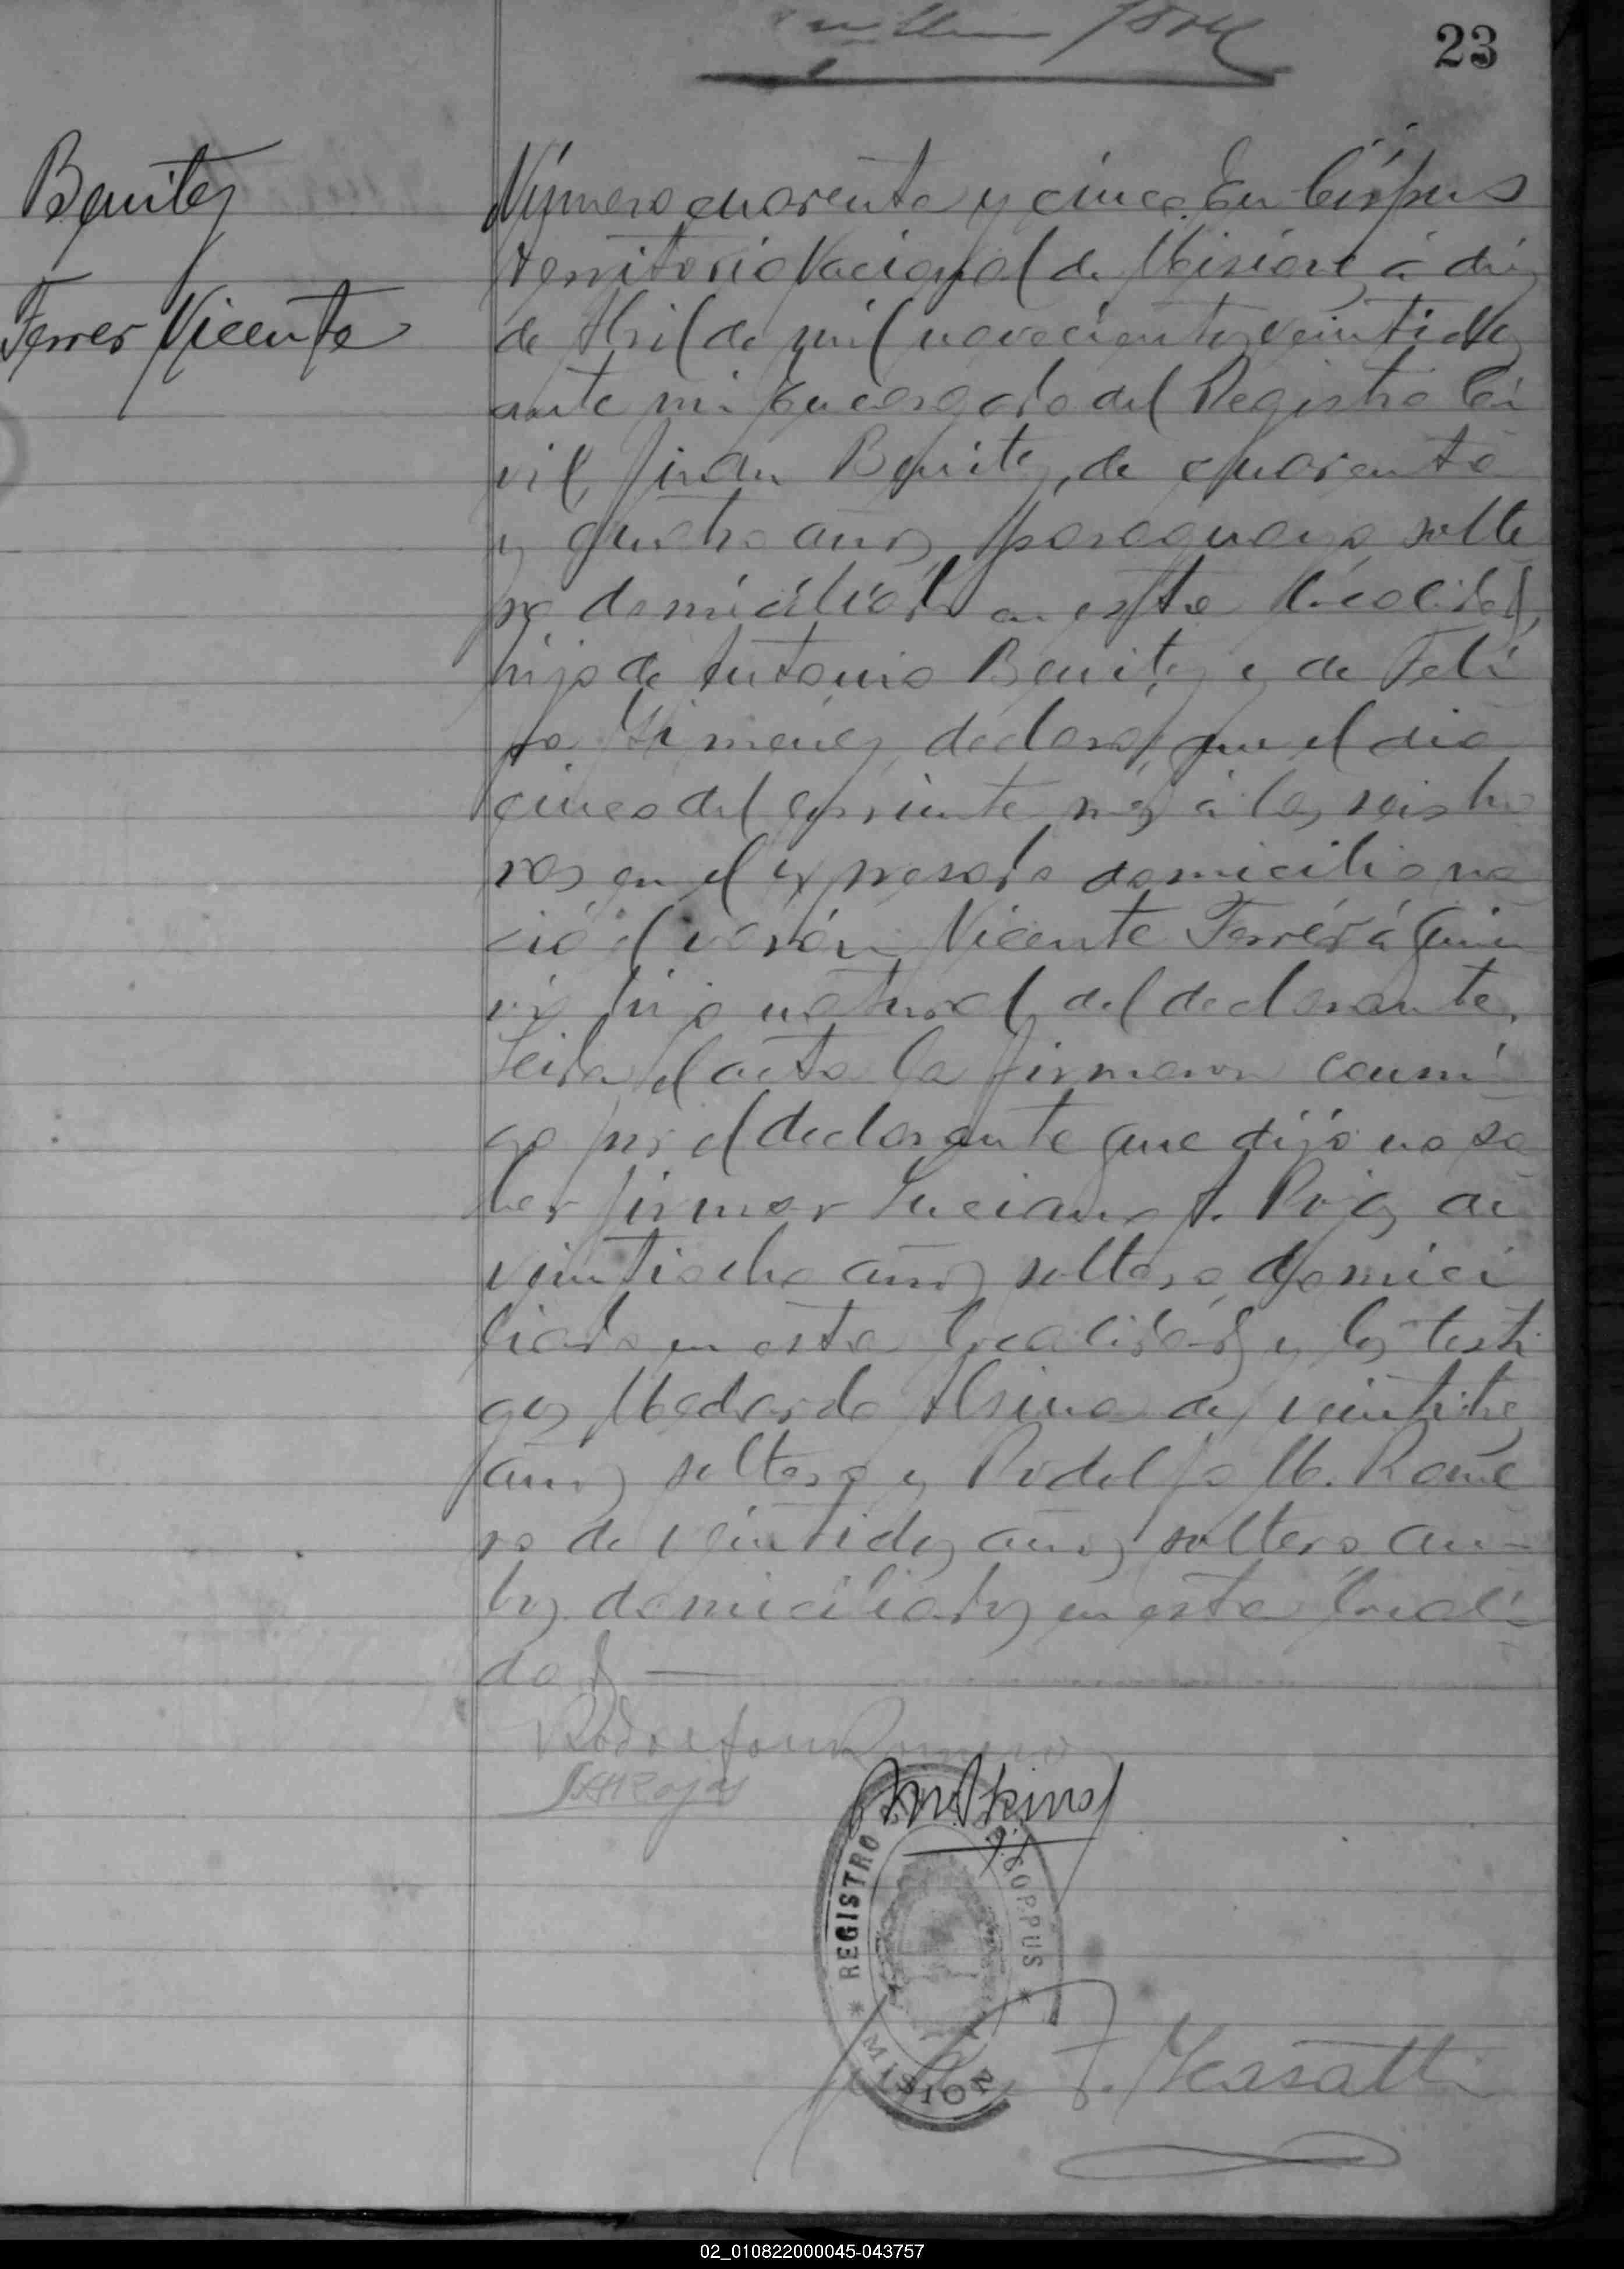 23
Benitez
Ferrer Vicente
Número cuarenta y cinco. En Córpus
territorio Nacional de Misiones á diez
de Abril de mil novecientos veintidos
ante mi Encargado del Registro Ci
vil, Juan Benitez, de cuarenta
y cuatro años, paraguayo, solte
ro domiciliado en esta localidad,
hijo de Antonio Benitez y de Feli
pa Gimenez, declaró, que el dia
cinco del corriente mes á las seis ho
ras en el expresado domicilio na
ció el varón Vicente Ferrer á quien
ví hijo natural del declarante.
Leida el acta la firmaron conmi
go por el declarante que dijo no sa
ber firmar Luciano A. Rojas de
veintiocho años soltero, domici
liado en esta localidad y los testi
gos Medardo Alsina de veintitres
años soltero y Rodolfo M. Rome
ro de veintidos años soltero am-
bos domiciliados en esta locali
dad
Rodolfo M Romero
LARojas
REGISTRO CORPUS
MISION
02_010822000045-043757